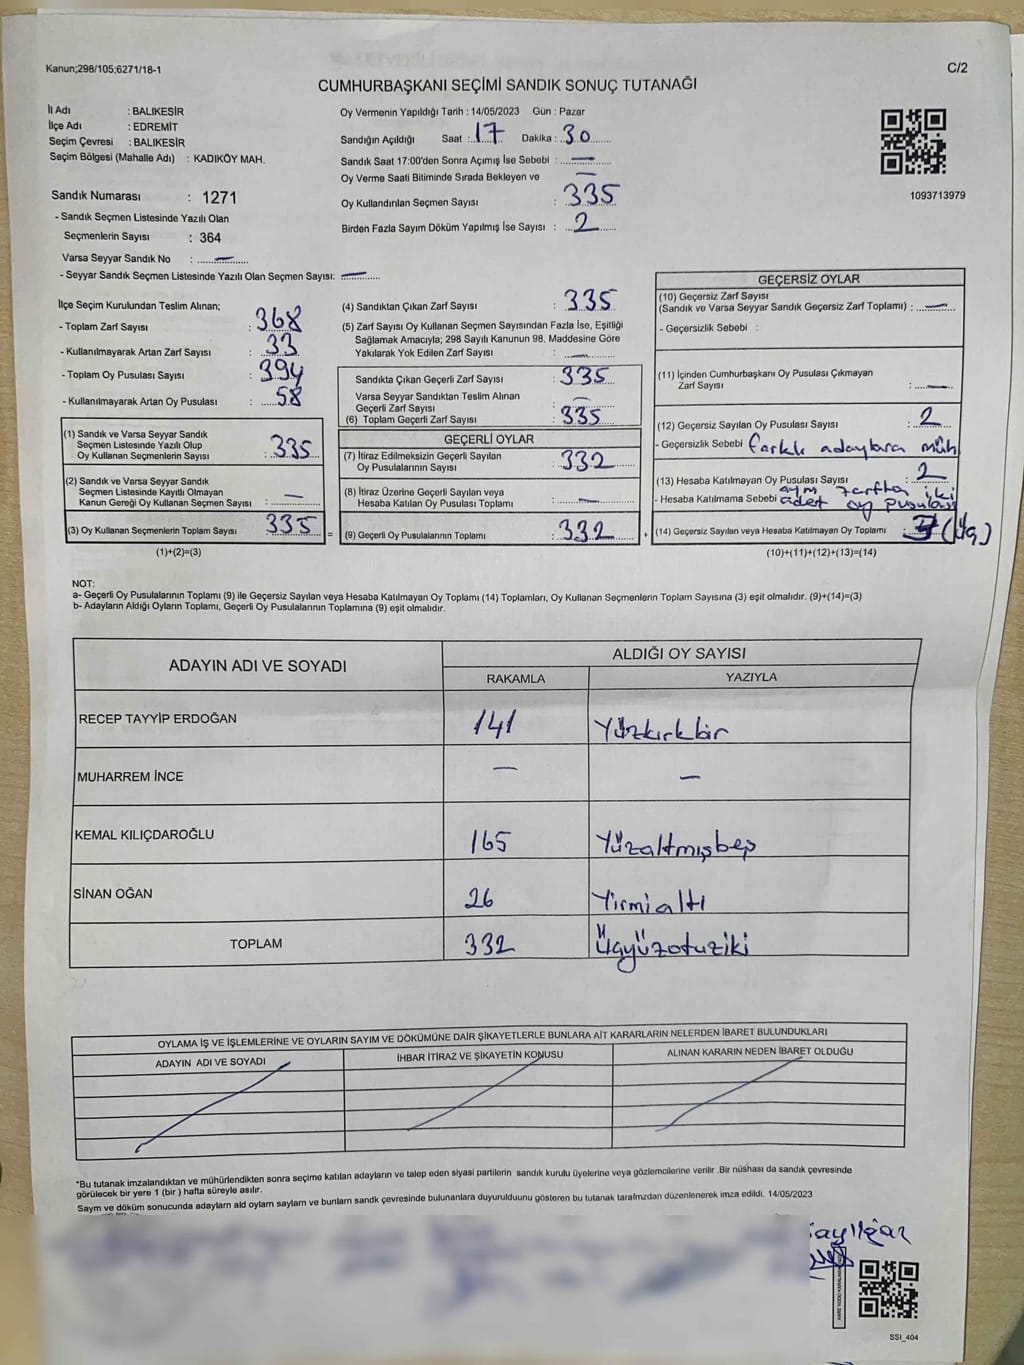 Kanun;298/105;6271/18-1
C/2
CUMHURBAŞKANI SEÇİMİ SANDIK SONUÇ TUTANAĞI
İl Adı : BALIKESİR
İlçe Adı : EDREMİT
Seçim Çevresi : BALIKESİR
Seçim Bölgesi (Mahalle Adı) : KADIKÖY MAH.
Sandık Numarası : 1271
- Sandık Seçmen Listesinde Yazılı Olan
Seçmenlerin Sayısı : 364
Varsa Seyyar Sandık No : —
- Seyyar Sandık Seçmen Listesinde Yazılı Olan Seçmen Sayısı: —
Oy Vermenin Yapıldığı Tarih : 14/05/2023 Gün : Pazar
Sandığın Açıldığı Saat : 17 Dakika : 30
Sandık Saat 17:00'den Sonra Açımış İse Sebebi : —
Oy Verme Saati Bitiminde Sırada Bekleyen ve —
Oy Kullandırılan Seçmen Sayısı : 335
Birden Fazla Sayım Döküm Yapılmış İse Sayısı : 2
1093713979
İlçe Seçim Kurulundan Teslim Alınan;
- Toplam Zarf Sayısı : 368
- Kullanılmayarak Artan Zarf Sayısı : 33
- Toplam Oy Pusulası Sayısı : 394
- Kullanılmayarak Artan Oy Pusulası : 58
(1) Sandık ve Varsa Seyyar Sandık
Seçmen Listesinde Yazılı Olup
Oy Kullanan Seçmenlerin Sayısı : 335
(2) Sandık ve Varsa Seyyar Sandık
Seçmen Listesinde Kayıtlı Olmayan
Kanun Gereği Oy Kullanan Seçmen Sayısı : —
(3) Oy Kullanan Seçmenlerin Toplam Sayısı : 335 =
(1)+(2)=(3)
(4) Sandıktan Çıkan Zarf Sayısı : 335
(5) Zarf Sayısı Oy Kullanan Seçmen Sayısından Fazla İse, Eşitliği
Sağlamak Amacıyla; 298 Sayılı Kanunun 98. Maddesine Göre
Yakılarak Yok Edilen Zarf Sayısı : —
Sandıkta Çıkan Geçerli Zarf Sayısı : 335
Varsa Seyyar Sandıktan Teslim Alınan
Geçerli Zarf Sayısı : —
(6) Toplam Geçerli Zarf Sayısı : 335
GEÇERLİ OYLAR
(7) İtiraz Edilmeksizin Geçerli Sayılan
Oy Pusulalarının Sayısı : 332
(8) İtiraz Üzerine Geçerli Sayılan veya
Hesaba Katılan Oy Pusulası Toplamı : —
(9) Geçerli Oy Pusulalarının Toplamı : 332 +
GEÇERSİZ OYLAR
(10) Geçersiz Zarf Sayısı
(Sandık ve Varsa Seyyar Sandık Geçersiz Zarf Toplamı) : —
- Geçersizlik Sebebi :
(11) İçinden Cumhurbaşkanı Oy Pusulası Çıkmayan
Zarf Sayısı : —
(12) Geçersiz Sayılan Oy Pusulası Sayısı : 2
- Geçersizlik Sebebi farklı adaylara müh
(13) Hesaba Katılmayan Oy Pusulası Sayısı : 2
- Hesaba Katılmama Sebebi aynı zarfta iki
adet oy pusulası
(14) Geçersiz Sayılan veya Hesaba Katılmayan Oy Toplamı : 3 (üç)
(10)+(11)+(12)+(13)=(14)
NOT:
a- Geçerli Oy Pusulalarının Toplamı (9) ile Geçersiz Sayılan veya Hesaba Katılmayan Oy Toplamı (14) Toplamları, Oy Kullanan Seçmenlerin Toplam Sayısına (3) eşit olmalıdır. (9)+(14)=(3)
b- Adayların Aldığı Oyların Toplamı, Geçerli Oy Pusulalarının Toplamına (9) eşit olmalıdır.
ADAYIN ADI VE SOYADI
ALDIĞI OY SAYISI
RAKAMLA YAZIYLA
RECEP TAYYİP ERDOĞAN 141 Yüzkırkbir
MUHARREM İNCE — —
KEMAL KILIÇDAROĞLU 165 Yüzaltmışbeş
SİNAN OĞAN 26 Yirmialtı
TOPLAM 332 Üçyüzotuziki
OYLAMA İŞ VE İŞLEMLERİNE VE OYLARIN SAYIM VE DÖKÜMÜNE DAİR ŞİKAYETLERLE BUNLARA AİT KARARLARIN NELERDEN İBARET BULUNDUKLARI
ADAYIN ADI VE SOYADI İHBAR İTİRAZ VE ŞİKAYETİN KONUSU ALINAN KARARIN NEDEN İBARET OLDUĞU
*Bu tutanak imzalandıktan ve mühürlendikten sonra seçime katılan adayların ve talep eden siyasi partilerin sandık kurulu üyelerine veya gözlemcilerine verilir .Bir nüshası da sandık çevresinde
görülecek bir yere 1 (bir ) hafta süreyle asılır.
Saym ve döküm sonucunda adaylarn ald oylarn saylarn ve bunlarn sandk çevresinde bulunanlara duyurulduunu gösteren bu tutanak tarafmzdan düzenlenerek imza edildi. 14/05/2023
SSİ_404